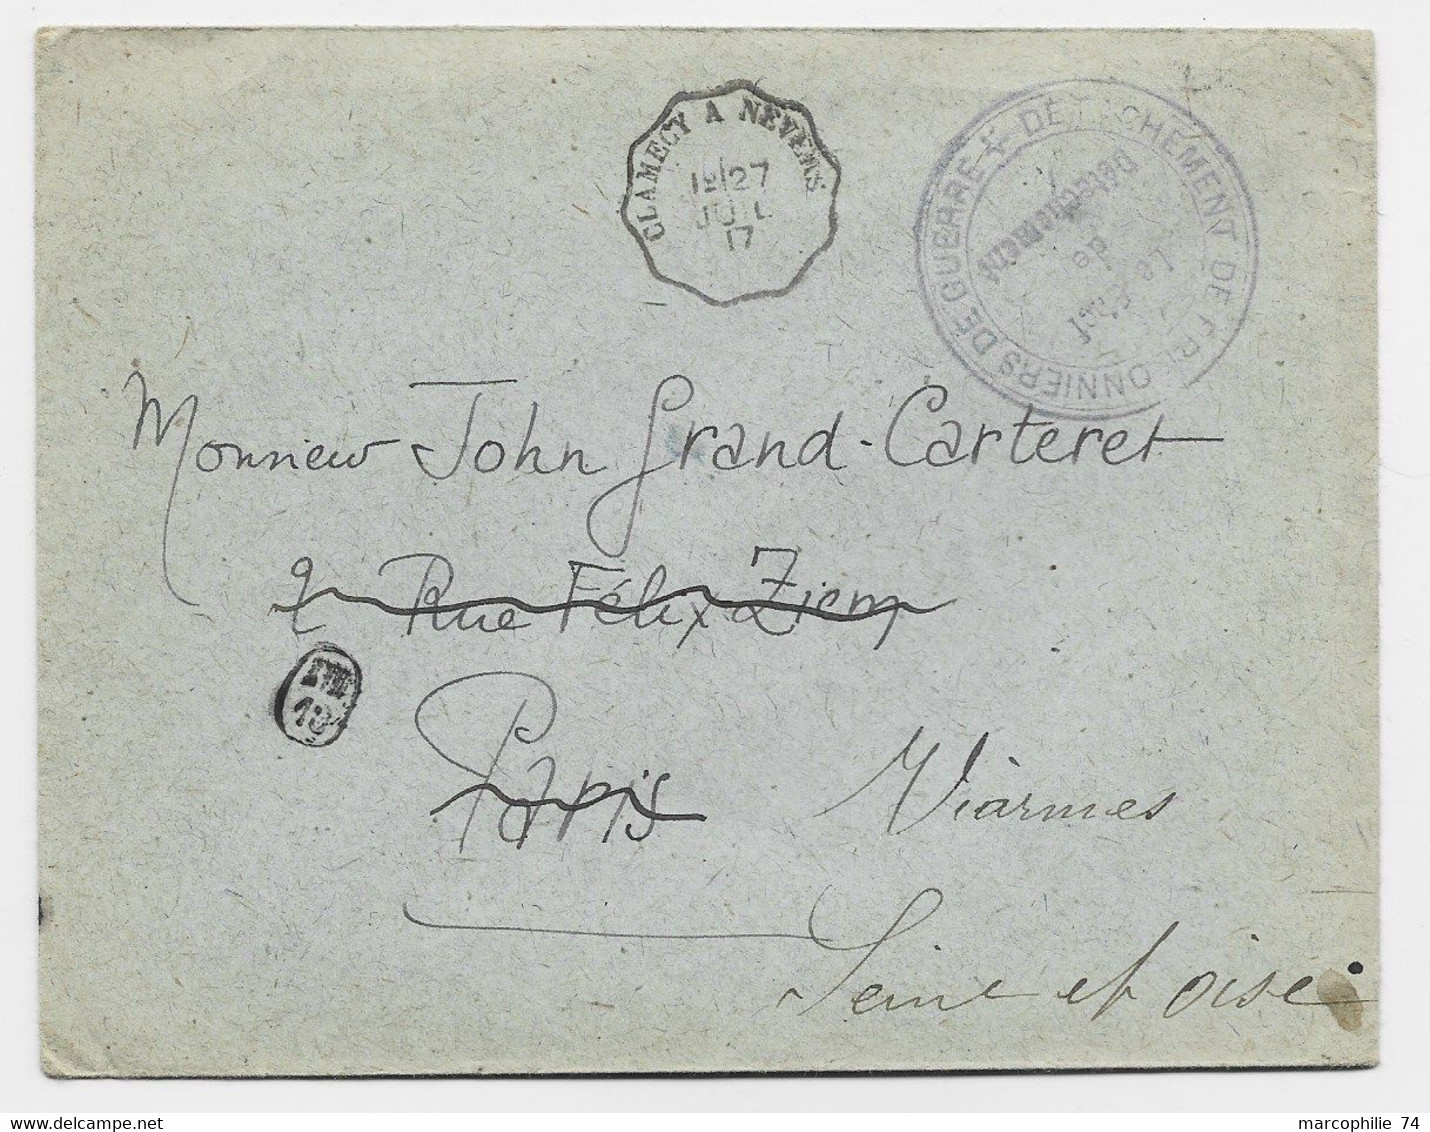 CLAMECY A NEVERS
27
JUIL
17
DÉTACHEMENT DE PRISONNIERS DE GUERRE
Le Chef
de
Détachement
Monsieur John Grand-Carteret
2 Rue Félix Ziem
XVIII
13
Paris
Viarmes
Seine et oise
marcophilie 74